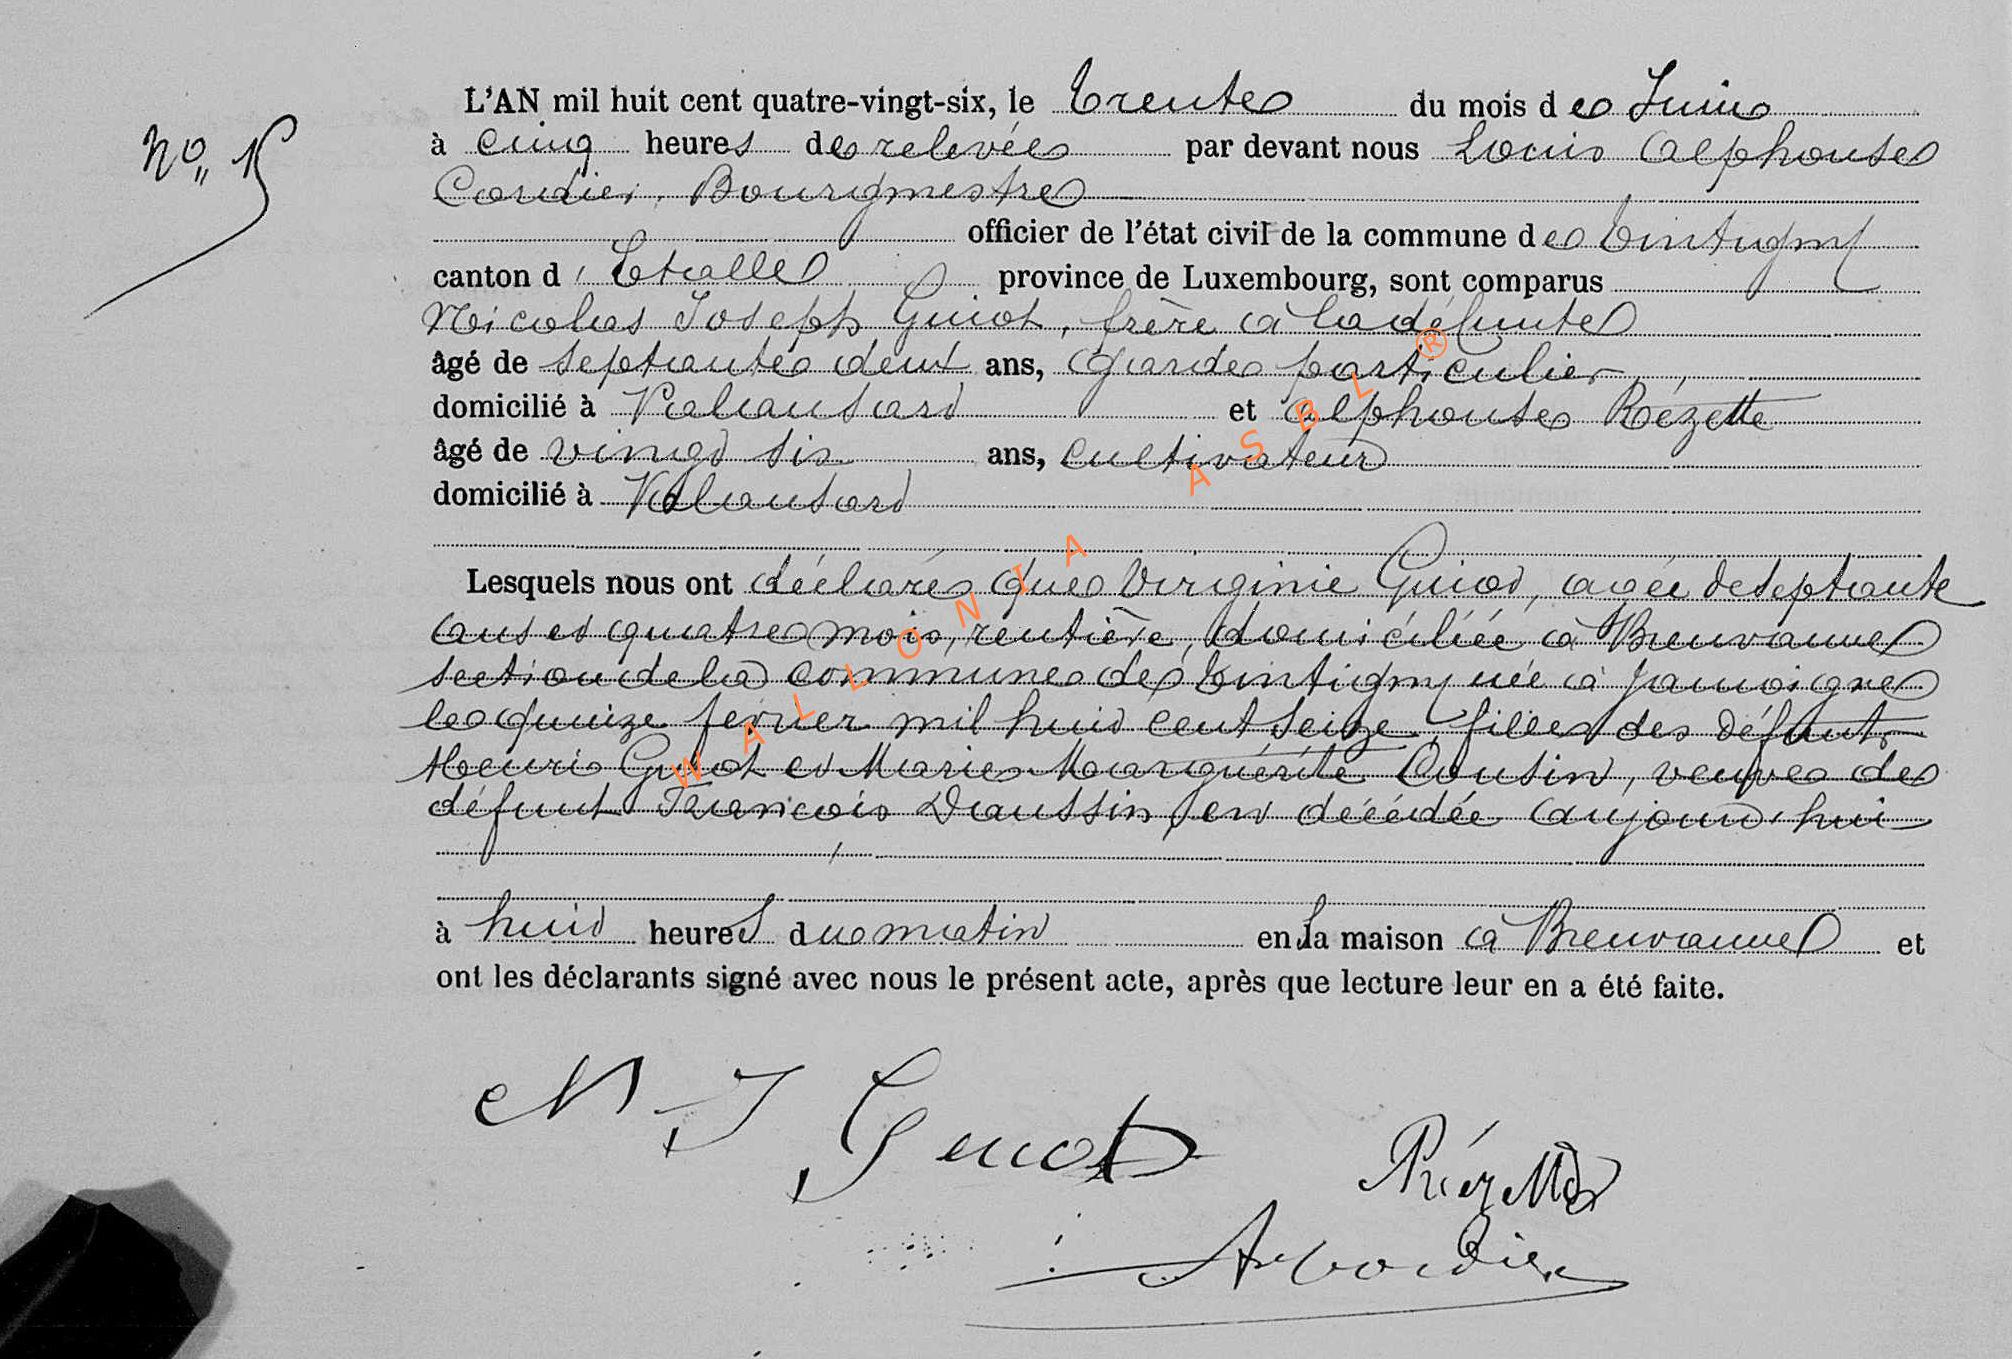 L'AN mil huit cent quatre-vingt-six, le trente du mois de Juin
N° 15
à cinq heures de relevée par devant nous Louis Alphonse
Cordier, Bourgmestre
officier de l'état civil de la commune de Tintigny
canton d'Etalle province de Luxembourg, sont comparus
Nicolas Joseph Guiot, frère à la défunte
âgé de septante deux ans, garde particulier,
domicilié à Valansard et Alphonse Rézette
âgé de vingt six ans, cultivateur
domicilié à Valansard
Lesquels nous ont déclaré que Virginie Guiot, agée de septante
ans et quatre mois, rentière, domiciliée à Breuvanne
section de la commune de Tintigny née à Jamoigne
le quinze février mil huit cent seize, fille des défunts
Henri Guiot et Marie Marguérite Cousin, veuve de
défunt François Daussin, est décédée aujourd'hui
à huit heures du matin en sa maison à Breuvanne et
ont les déclarants signé avec nous le présent acte, après que lecture leur en a été faite.
N J Guiot
Rézette
A Cordier
WALLONIA ASBL ®